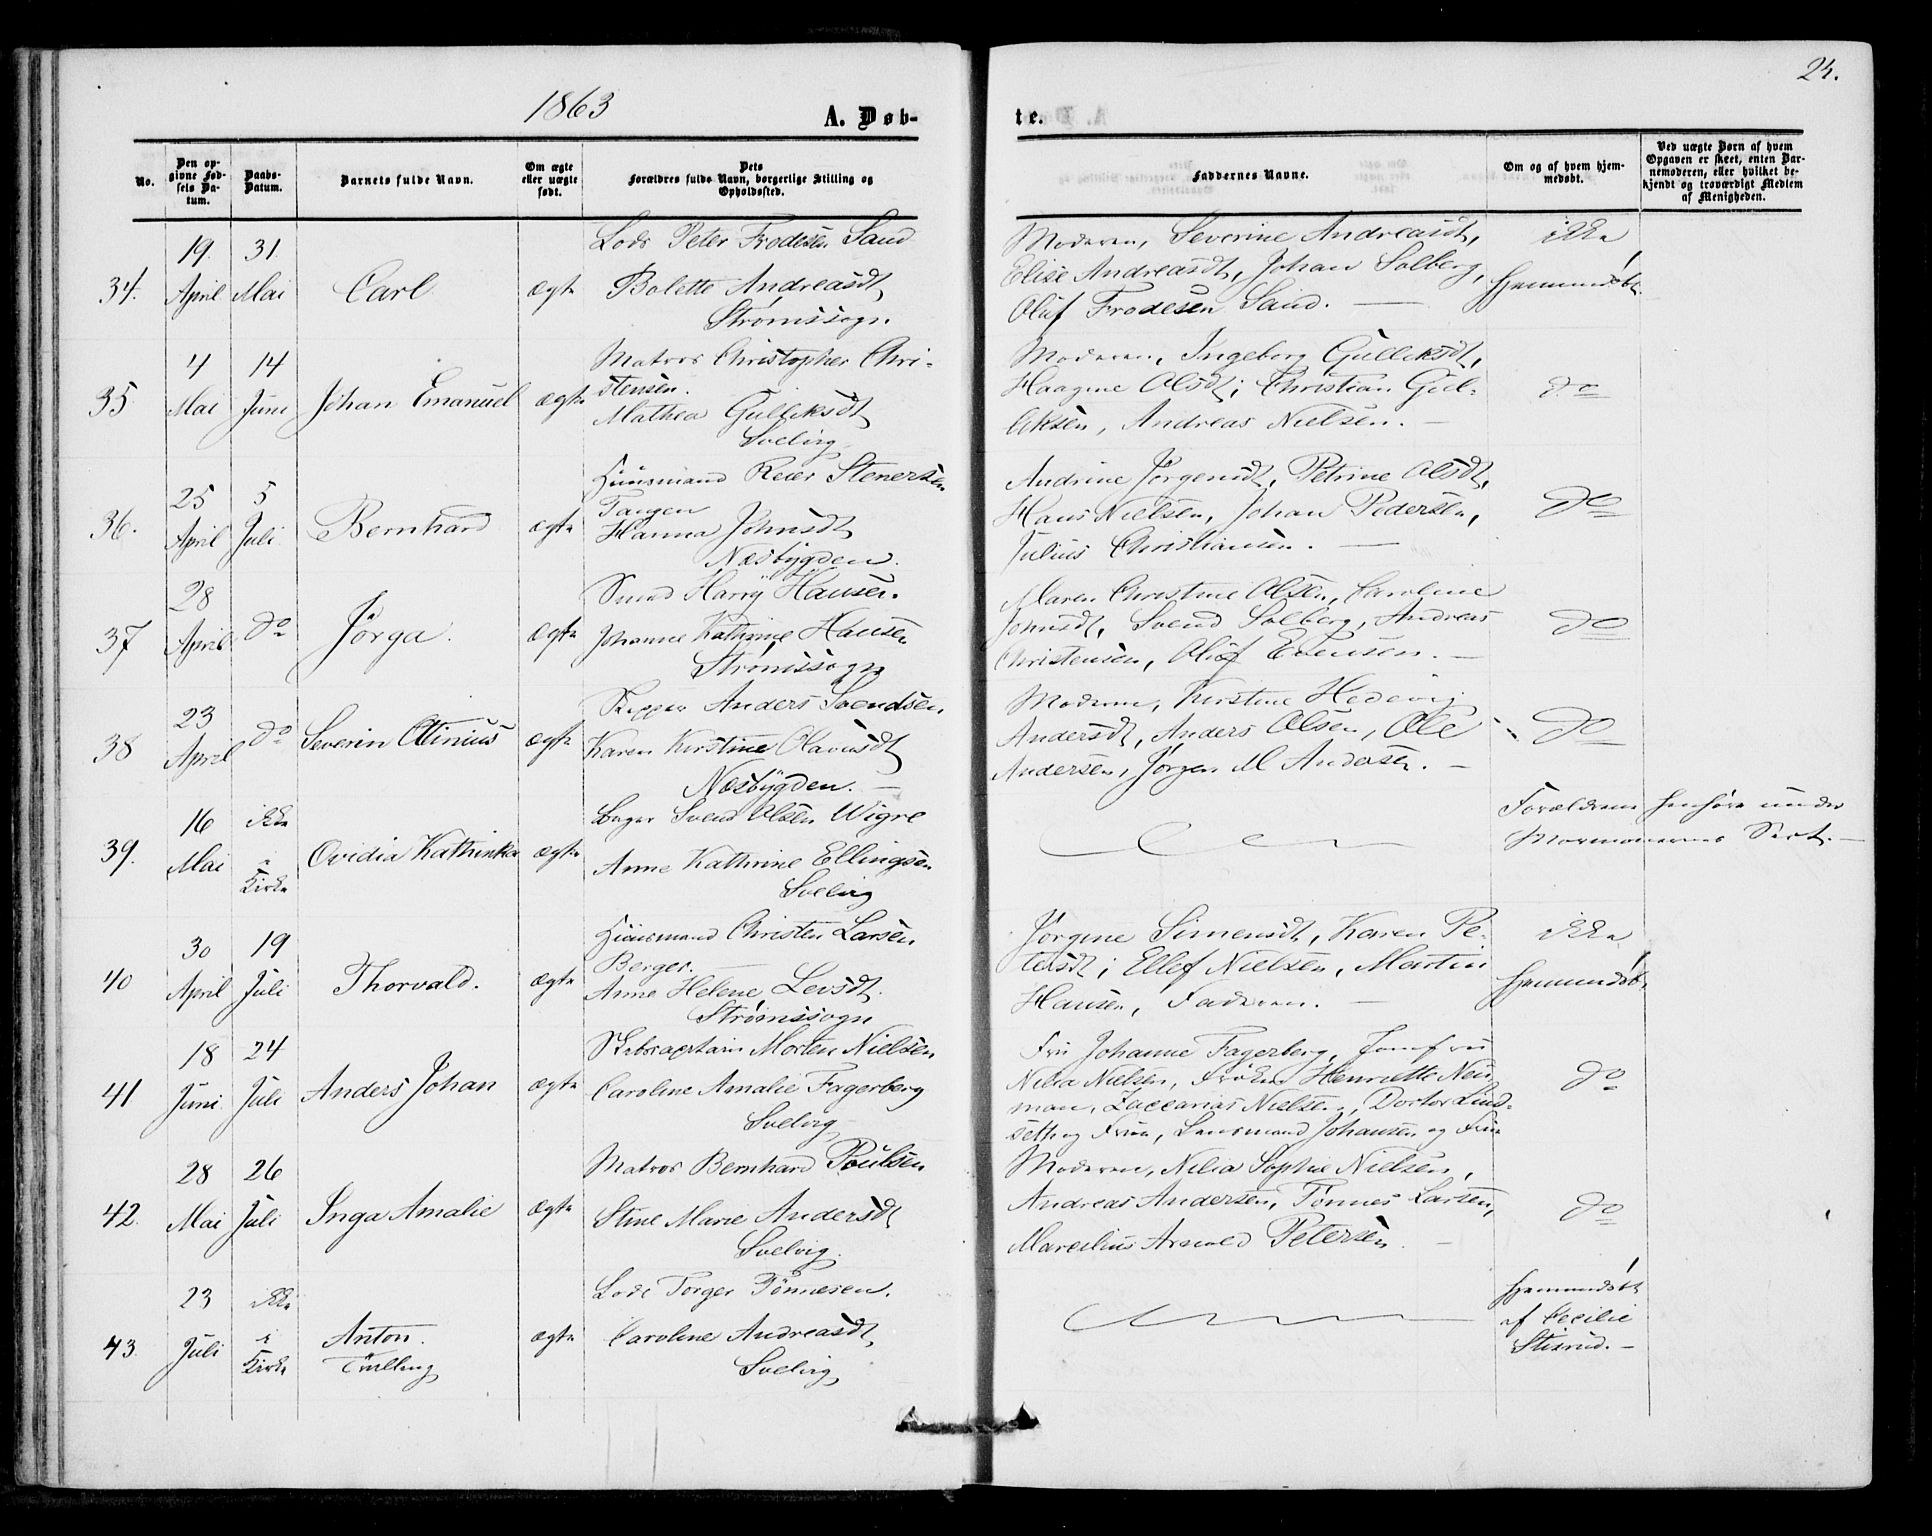 1863
A. Døb-
No.
Den op-
givne Fød-
sels Da-
tum.
Daabs-
Datum.
Barnets fulde Navn.
Om ægte
eller uægte
født.
Dets
Forældres fulde Navn, borgerlige Stilling og
Opholdssted.
34.
19.
April
31.
Mai
Carl
ægte
Lods Peter Frodesen Sand
Bolette Andreasdt
Strømssogn.
35.
4
Mai
14
Juni
Johan Emanuel
ægte
Matros Christopher Chri-
stensen.
Mathea Gulliksdt
Svelvig
36.
25
April
5
Juli
Bernhard
ægte
Huusmand Reier Stenersen
Tangen
Hanna Johnsdt
Næsbygden.
37
28
April
do
Jørga.
ægte
Smed Harry Hansen.
Johanne Kathrine Hansen
Strømssogn
38
23
April
do
Severin Otinius
ægte
Skipper Anders Svendsen
Karen Kirstine Olavesdt
Næsbygden.
39.
16
Mai
ikke
i
Kirke
Ovidia Kathinka
ægte
Bager Svend Olsen Wigre
Anne Kathrine Ellingsen
Svelvig
40
30
April
19
Juli
Thorvald.
ægte
Huusmand Christen Larsen
Berger.
Anne Helene Levsdt.
Strømssogn
41
18
Juni
24
Juli
Anders Johan
ægte
Skibscaptain Morten Nielsen
Caroline Amalie Fagerberg
Svelvig
42.
28
Mai
26
Juli
Inga Amalie
ægte
Matros Bernhard Poulsen
Stine Marie Andersdt
Svelvig.
43.
23
Juli
ikke
i
Kirke
Anton.
Tvilling
ægte
Lods Torger Tønnesen.
Caroline Andreasdt
Svelvig
24.
te.
Faddernes Navne.
Om og af hvem hjem-
medøbt.
Ved uægte Børn af hvem
Opgaven er skeet, enten Bar-
nemoderen, eller hvilket be-
kjendt og troværdigt Medlem
af Menigheden.
Moderen, Severine Andreasdt,
Elise Andreasdt, Johan Solberg,
Oluf Frodesen Sand.
ikke
hjemmedøbt.
Moderen, Ingeborg Gulliksdt,
Haagine Olsdt; Christian Gul-
liksen, Andreas Nielsen.
do
Andrine Jørgensdt, Petrine Olsdt,
Hans Nielsen, Johan Pedersen,
Julius Christiansen.
do
Maren Christine Olsen, Caroline
Johnsdt, Svend Solberg, Andreas
Christensen, Oluf Evensen.
do
Moderen, Kirstine Hedevig
Andersdt, Anders Olsen, Ole
Andersen, Jørgen M Andersen.
do
Forældrene henhøre under
Mormonernes Sect.
Jørgine Simensdt, Karen Pe-
tersdt; Ellef Nielsen, Martin
Hansen, Faderen.
ikke
hjemmedøbt
Fru Johanne Fagerberg, Jomfru
Nilia Nielsen, Frøken Henriette Neu-
man, Zaccarias Nielsen, Doctor Lind-
seth og Frue, Lensmand Johansen og Frue
do
Moderen, Nilia Sophie Nielsen,
Andreas Andersen, Tønnes Larsen,
Marcilius Arnold Petersen.
do
hjemmedøbt
af Cecilie
Stisrud.